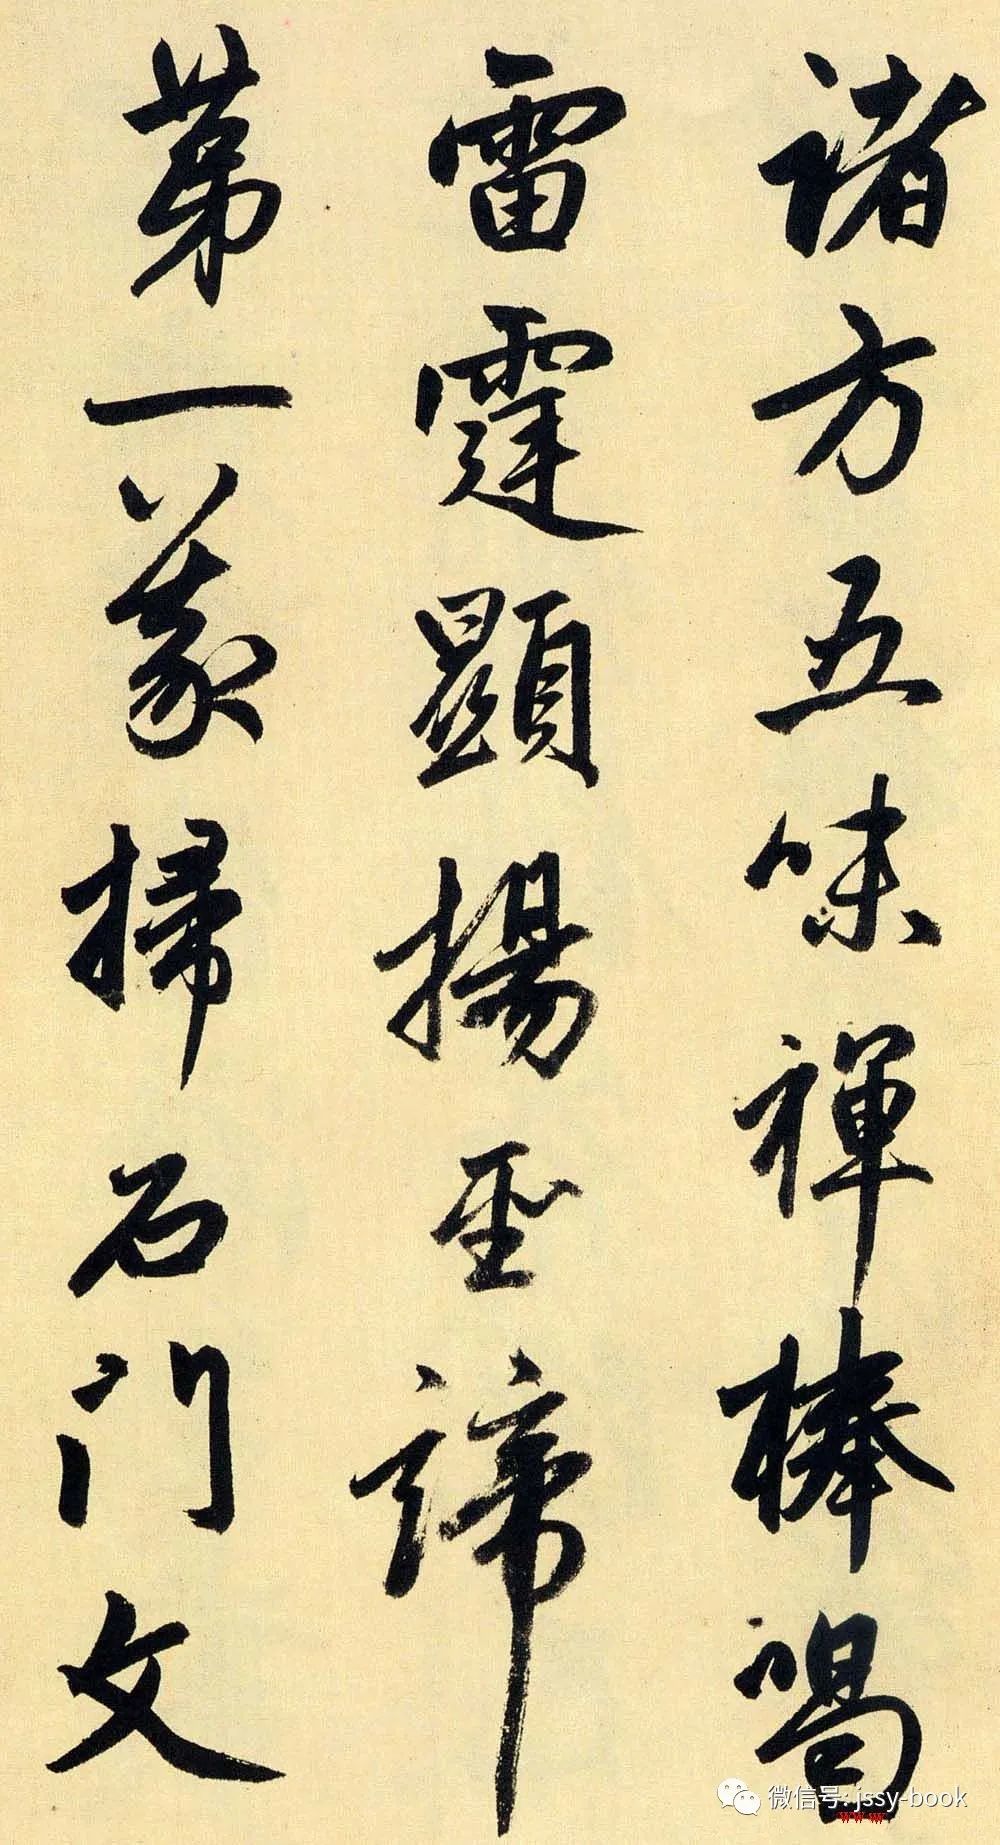 諸方五味禪棒喝
雷霆顯揚聖諦
第一義掃石門文
微信号:jssy-book
www